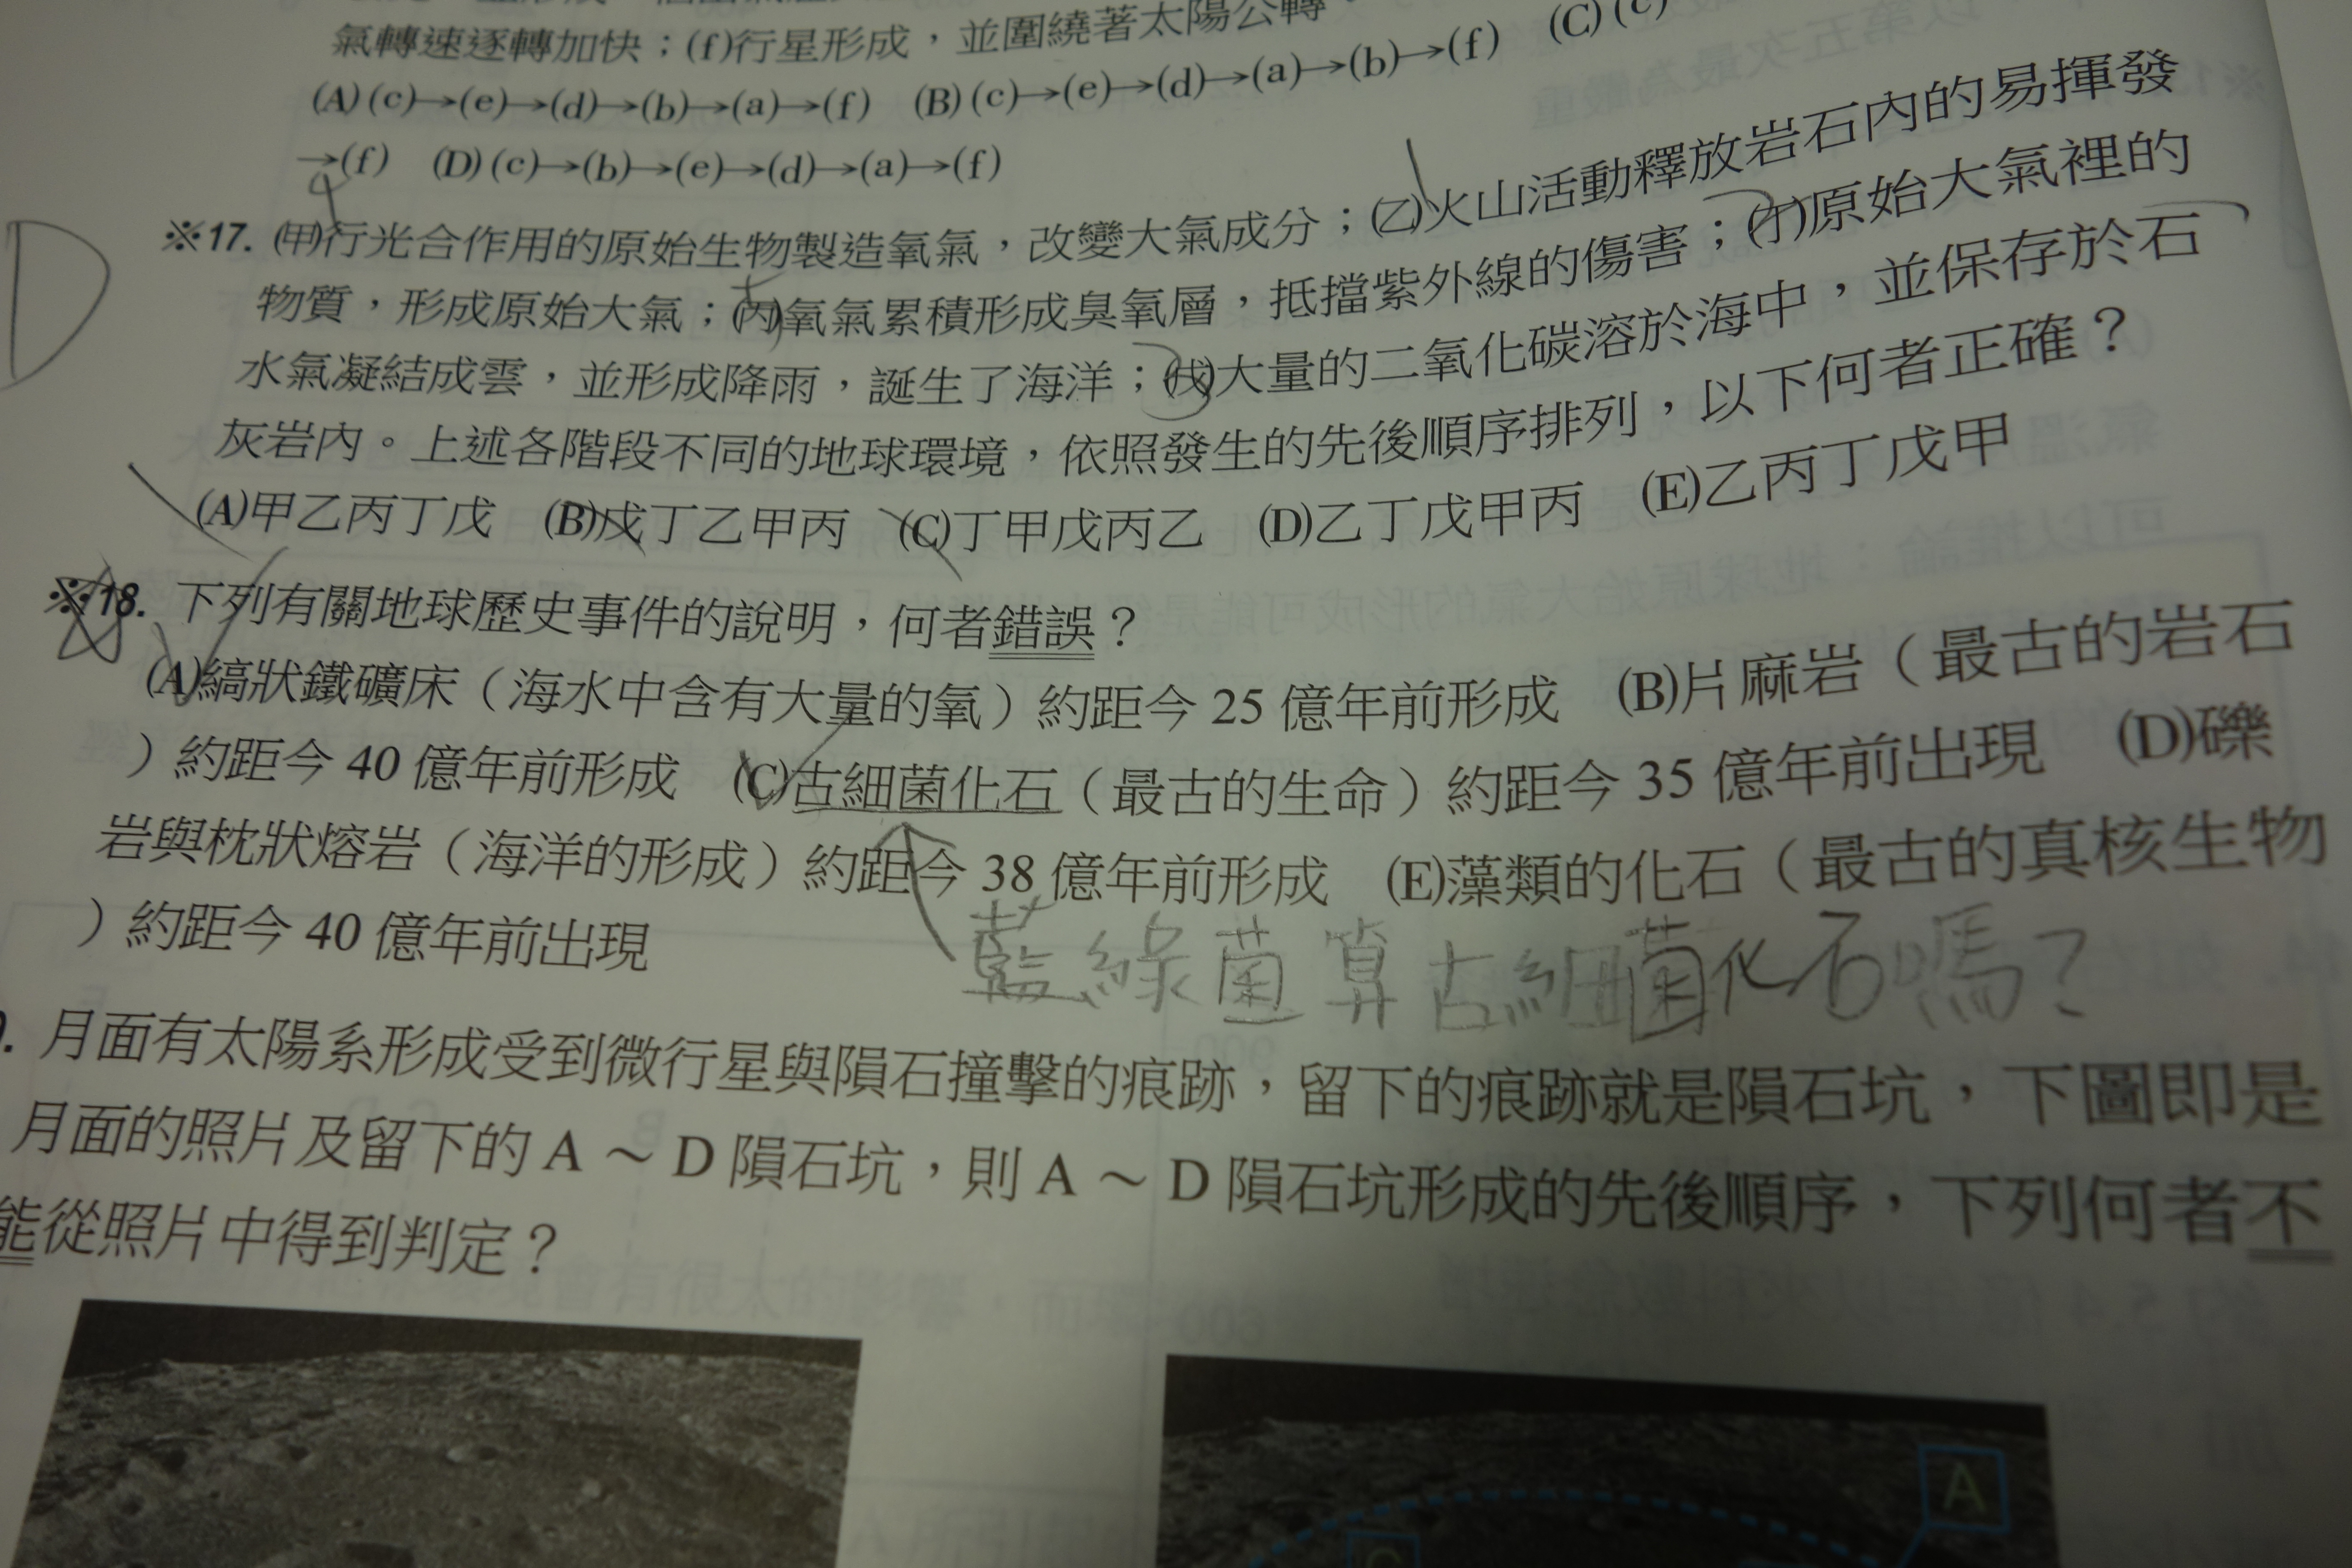 氣轉速逐轉加快；(f)行星形成，並圍繞著太陽公轉。
(A)(c)→(e)→(d)→(b)→(a)→(f) (B)(c)→(e)→(d)→(a)→(b)→(f) (C)(c)
→(f) (D)(c)→(b)→(e)→(d)→(a)→(f)
※17. (甲)行光合作用的原始生物製造氧氣，改變大氣成分；(乙)火山活動釋放岩石內的易揮發
物質，形成原始大氣；(丙)氧氣累積形成臭氧層，抵擋紫外線的傷害；(丁)原始大氣裡的
水氣凝結成雲，並形成降雨，誕生了海洋；(戊)大量的二氧化碳溶於海中，並保存於石
灰岩內。上述各階段不同的地球環境，依照發生的先後順序排列，以下何者正確？
(A)甲乙丙丁戊 (B)戊丁乙甲丙 (C)丁甲戊丙乙 (D)乙丁戊甲丙 (E)乙丙丁戊甲
D
※18. 下列有關地球歷史事件的說明，何者錯誤？
(A)縞狀鐵礦床（海水中含有大量的氧）約距今 25 億年前形成 (B)片麻岩（最古的岩石
）約距今 40 億年前形成 (C)古細菌化石（最古的生命）約距今 35 億年前出現 (D)礫
岩與枕狀熔岩（海洋的形成）約距今 38 億年前形成 (E)藻類的化石（最古的真核生物
）約距今 40 億年前出現
藍綠菌算古細菌化石嗎？
. 月面有太陽系形成受到微行星與隕石撞擊的痕跡，留下的痕跡就是隕石坑，下圖即是
月面的照片及留下的 A ～ D 隕石坑，則 A ～ D 隕石坑形成的先後順序，下列何者不
能從照片中得到判定？
A
C